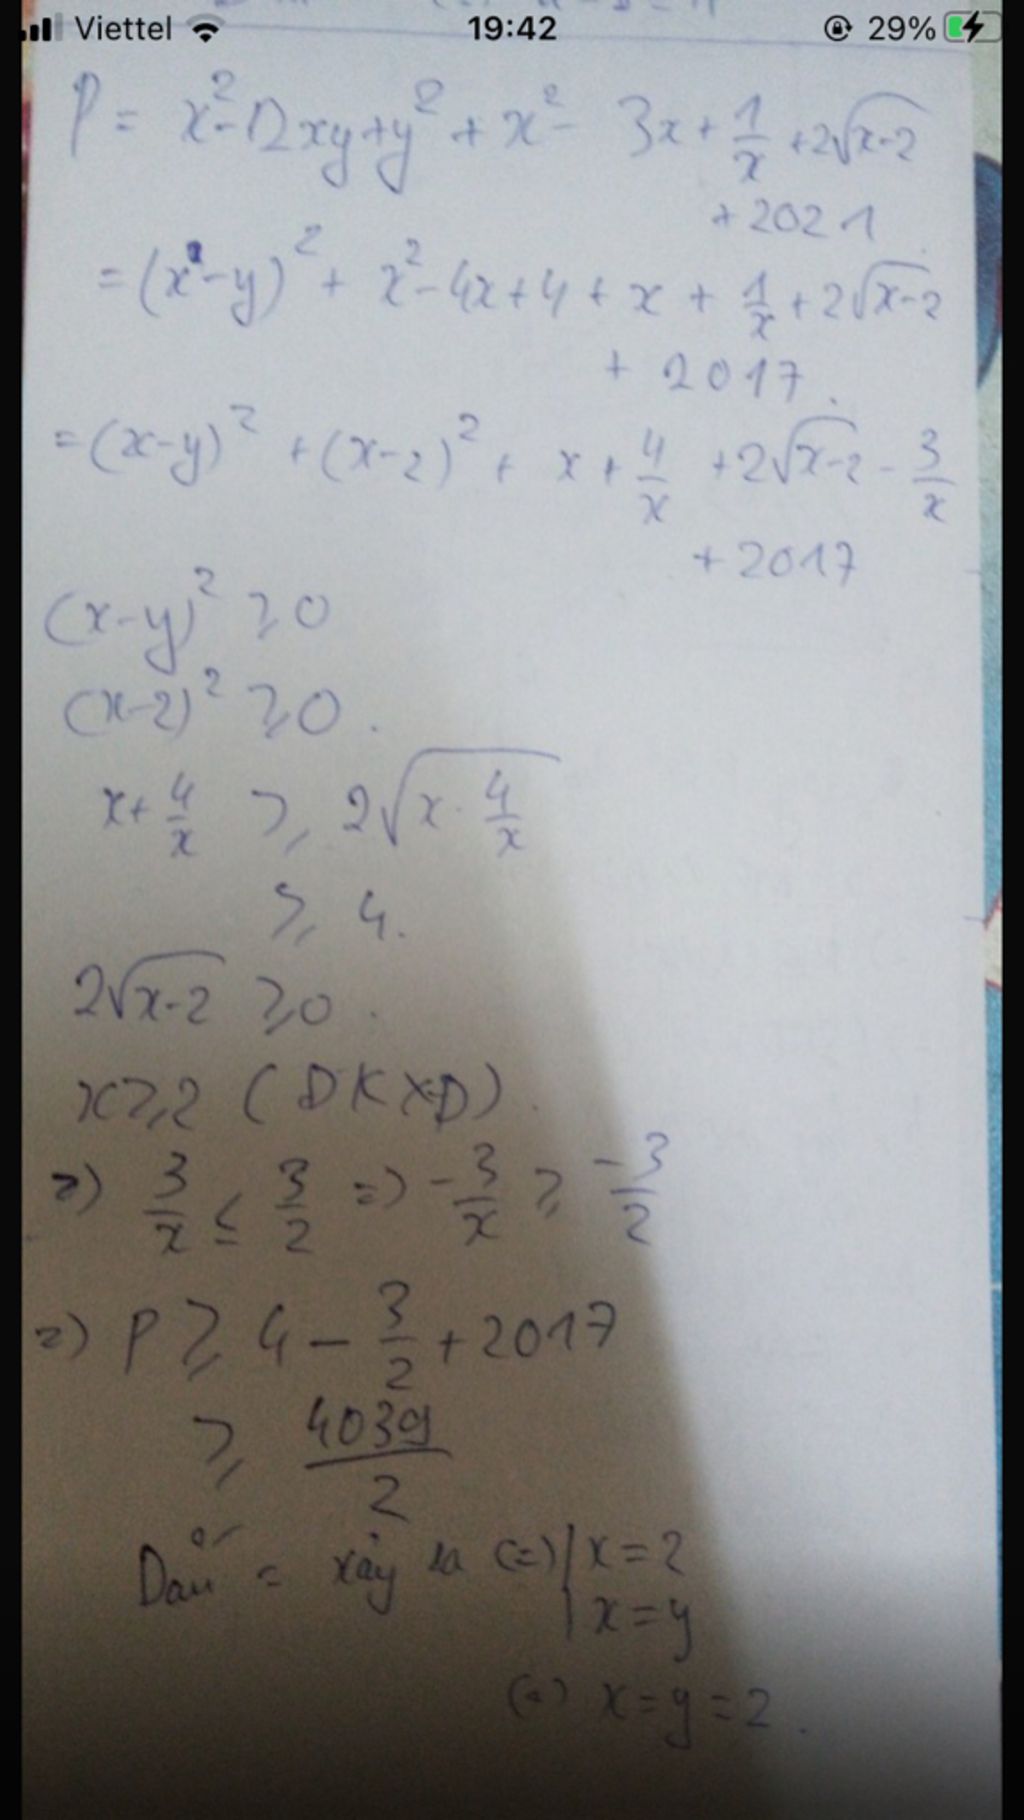 Viettel 19:42 29%
P = x² - 2xy + y² + x² - 3x + 1/x + 2√(x-2)
+ 2021
= (x - y)² + x² - 4x + 4 + x + 1/x + 2√(x-2)
+ 2017.
= (x-y)² + (x-2)² + x + 4/x + 2√(x-2) - 3/x
+ 2017
(x-y)² ≥ 0
(x-2)² ≥ 0.
x + 4/x ≥ 2√(x · 4/x)
≥ 4.
2√(x-2) ≥ 0.
x ≥ 2 (ĐKXĐ).
=) 3/x ≤ 3/2 =) -3/x ≥ -3/2
=) P ≥ 4 - 3/2 + 2017
≥ 4039/2
Dấu = xảy ra (=) | x = 2
| x = y
(=) x = y = 2.